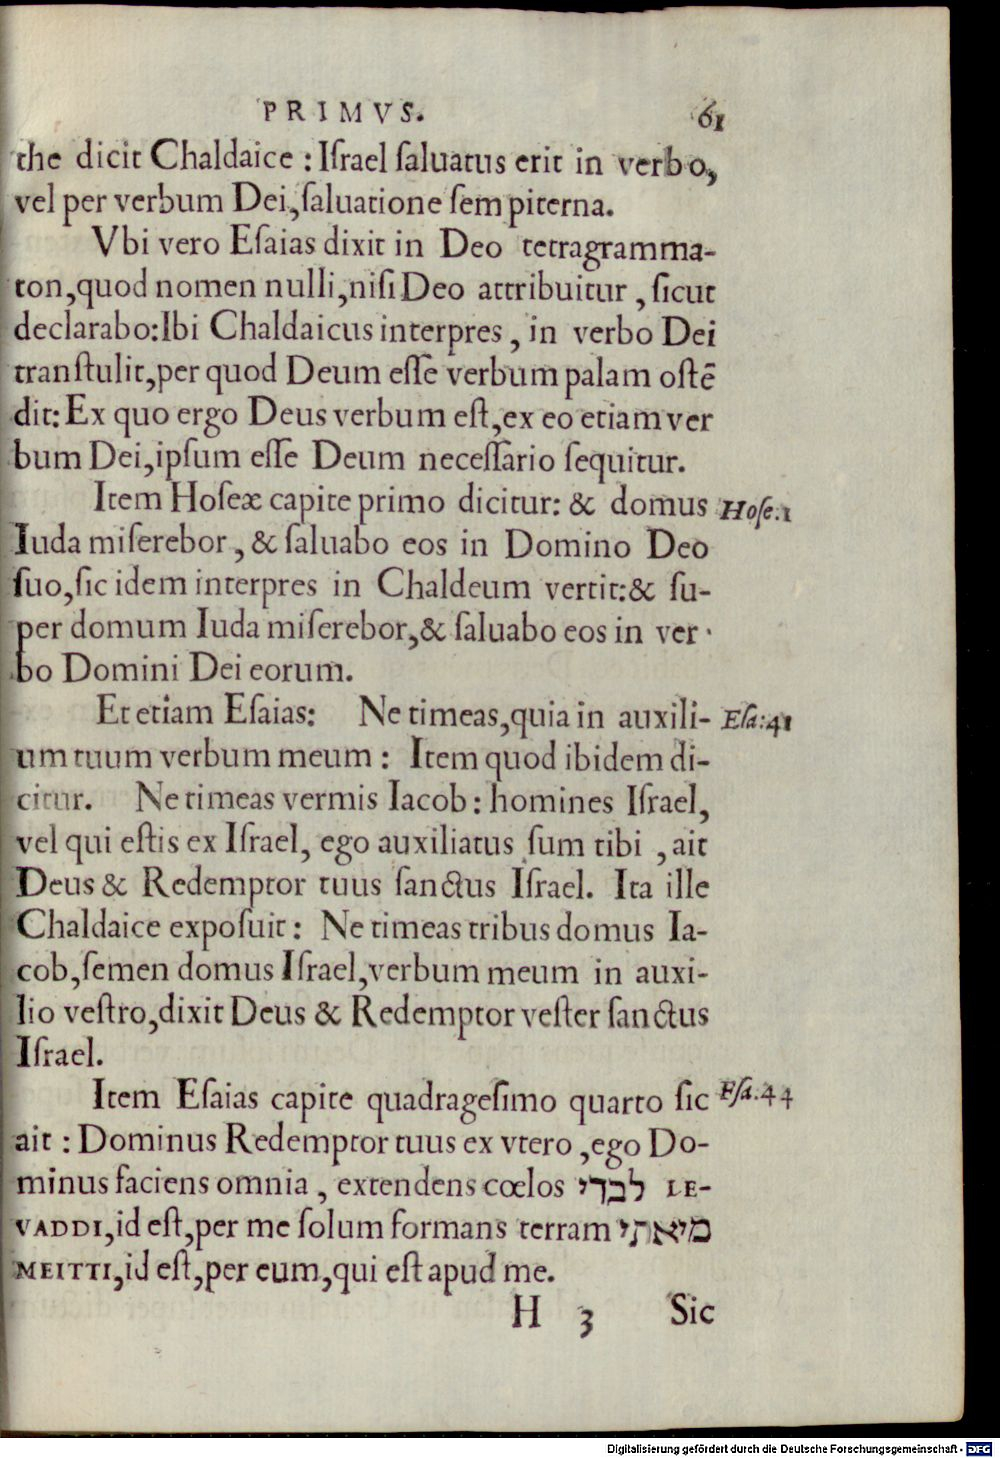 PRIMVS. 61
the dicit Chaldaice : Iſrael ſaluatus erit in verbo,
vel per verbum Dei, ſaluatione ſempiterna.
Vbi vero Eſaias dixit in Deo tetragramma-
ton, quod nomen nulli, niſi Deo attribuitur, ſicut
declarabo: Ibi Chaldaicus interpres, in verbo Dei
tranſtulit, per quod Deum eſſe verbum palam oſtē
dit: Ex quo ergo Deus verbum eſt, ex eo etiam ver
bum Dei, ipſum eſſe Deum neceſſario ſequitur.
Item Hoſeæ capite primo dicitur: & domus Hoſe.1
Iuda miſerebor, & ſaluabo eos in Domino Deo
ſuo, ſic idem interpres in Chaldeum vertit: & ſu-
per domum Iuda miſerebor, & ſaluabo eos in ver
bo Domini Dei eorum.
Et etiam Eſaias: Ne timeas, quia in auxili- Eſa:41
um tuum verbum meum : Item quod ibidem di-
citur. Ne timeas vermis Iacob : homines Iſrael,
vel qui eſtis ex Iſrael, ego auxiliatus ſum tibi, ait
Deus & Redemptor tuus ſanctus Iſrael. Ita ille
Chaldaice expoſuit : Ne timeas tribus domus Ia-
cob, ſemen domus Iſrael, verbum meum in auxi-
lio veſtro, dixit Deus & Redemptor veſter ſanctus
Iſrael.
Item Eſaias capite quadrageſimo quarto ſic Eſa.44
ait : Dominus Redemptor tuus ex vtero, ego Do-
minus faciens omnia, extendens cœlos לבדי LE-
VADDI, id eſt, per me ſolum formans terram מיאתי
MEITTI, id eſt, per eum, qui eſt apud me.
H 3 Sic
Digitalisierung gefördert durch die Deutsche Forschungsgemeinschaft - DFG